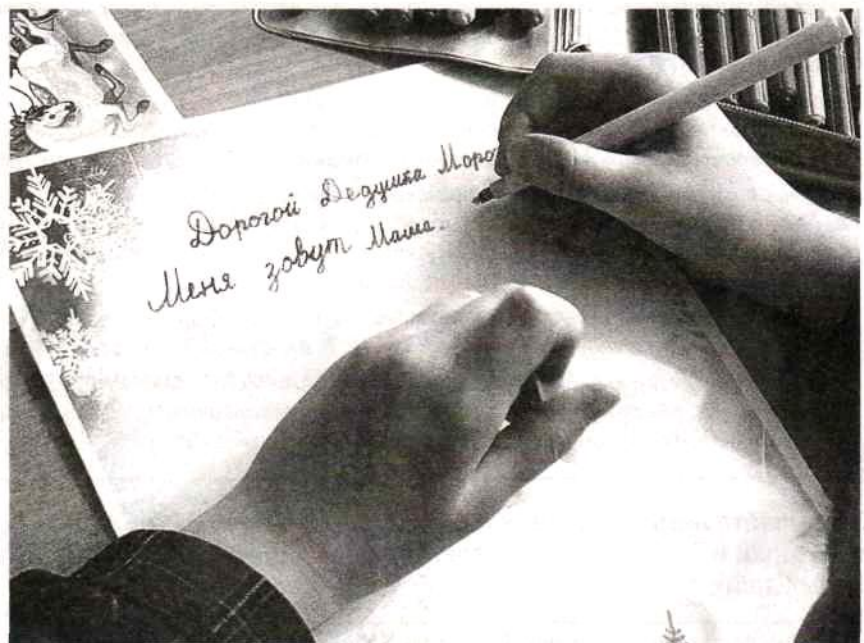 Дорогой Дедушка Моро
Меня зовут Маша.